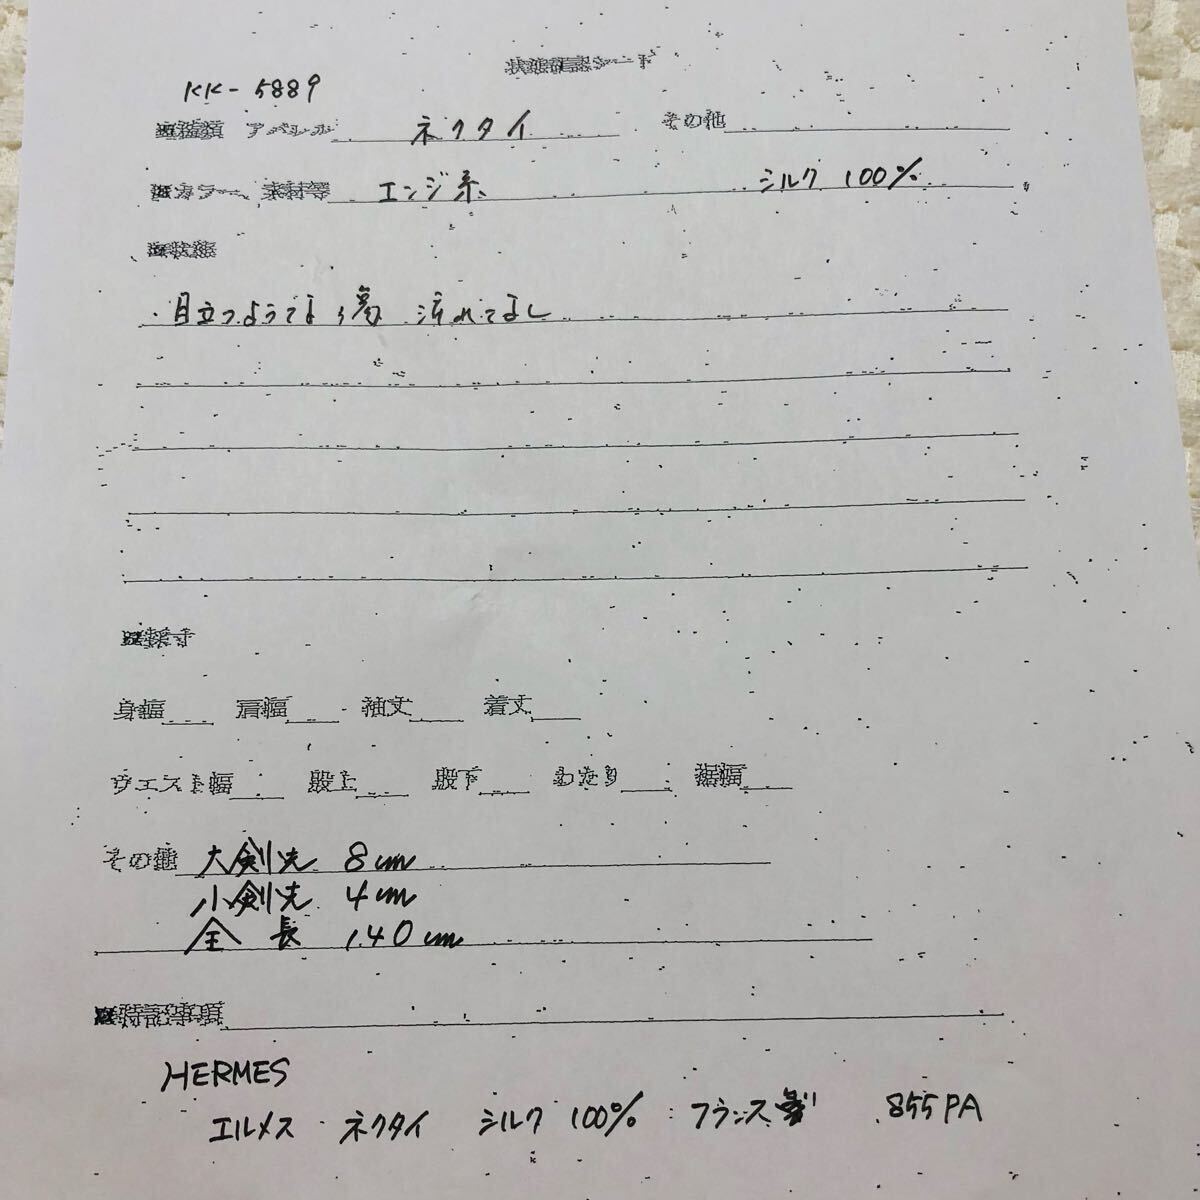 状態確認シート
KK-5889
種類 アパレル ネクタイ その他
カラー、素材等 エンジ系 シルク 100%
状態
・目立つような傷 汚れてなし
採寸
身幅 肩幅 袖丈 着丈
ウエスト幅 股上 股下 わたり 裾幅
その他 大剣先 8cm
小剣先 4cm
全長 140cm
特記事項
HERMES
エルメス ネクタイ シルク 100% フランス製 855PA